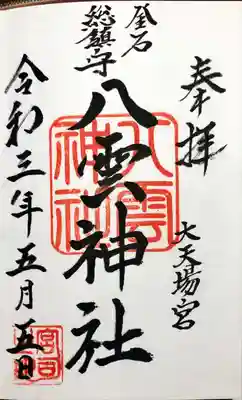 奉拝
大天場宮
釜石
総鎮守
八雲神社
八雲神社
令和三年五月五日
宮司